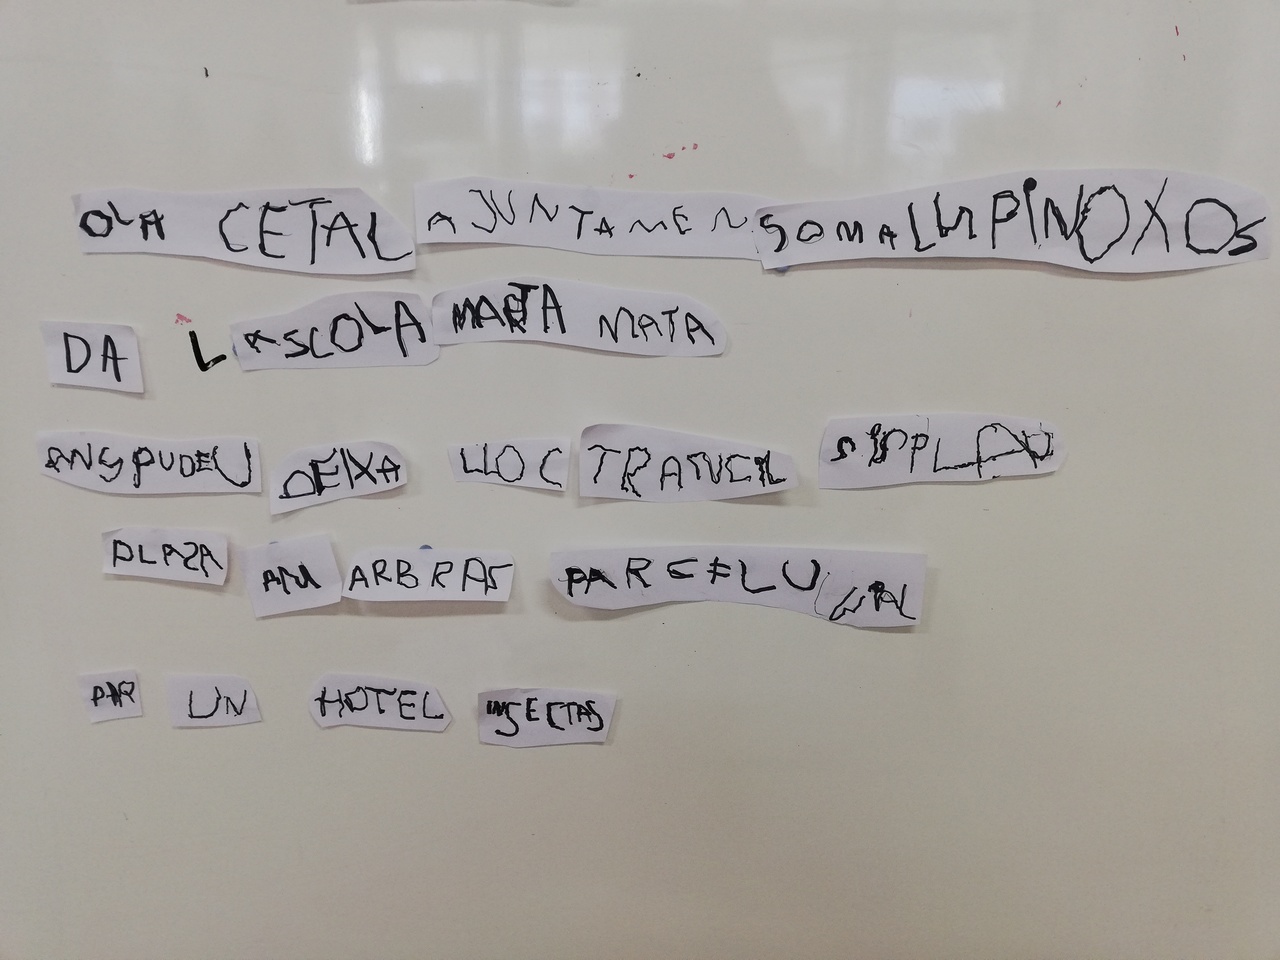 OLA CETAL AJUNTAMEN SOM ALLS PINOXOS
DA L ASCOLA MARTA MATA
ANS PUDEU DEIXA LLOC TRANCIL
PLAZA AM
ARBRAS PARCELU
PAR UN HOTEL INSECTAS